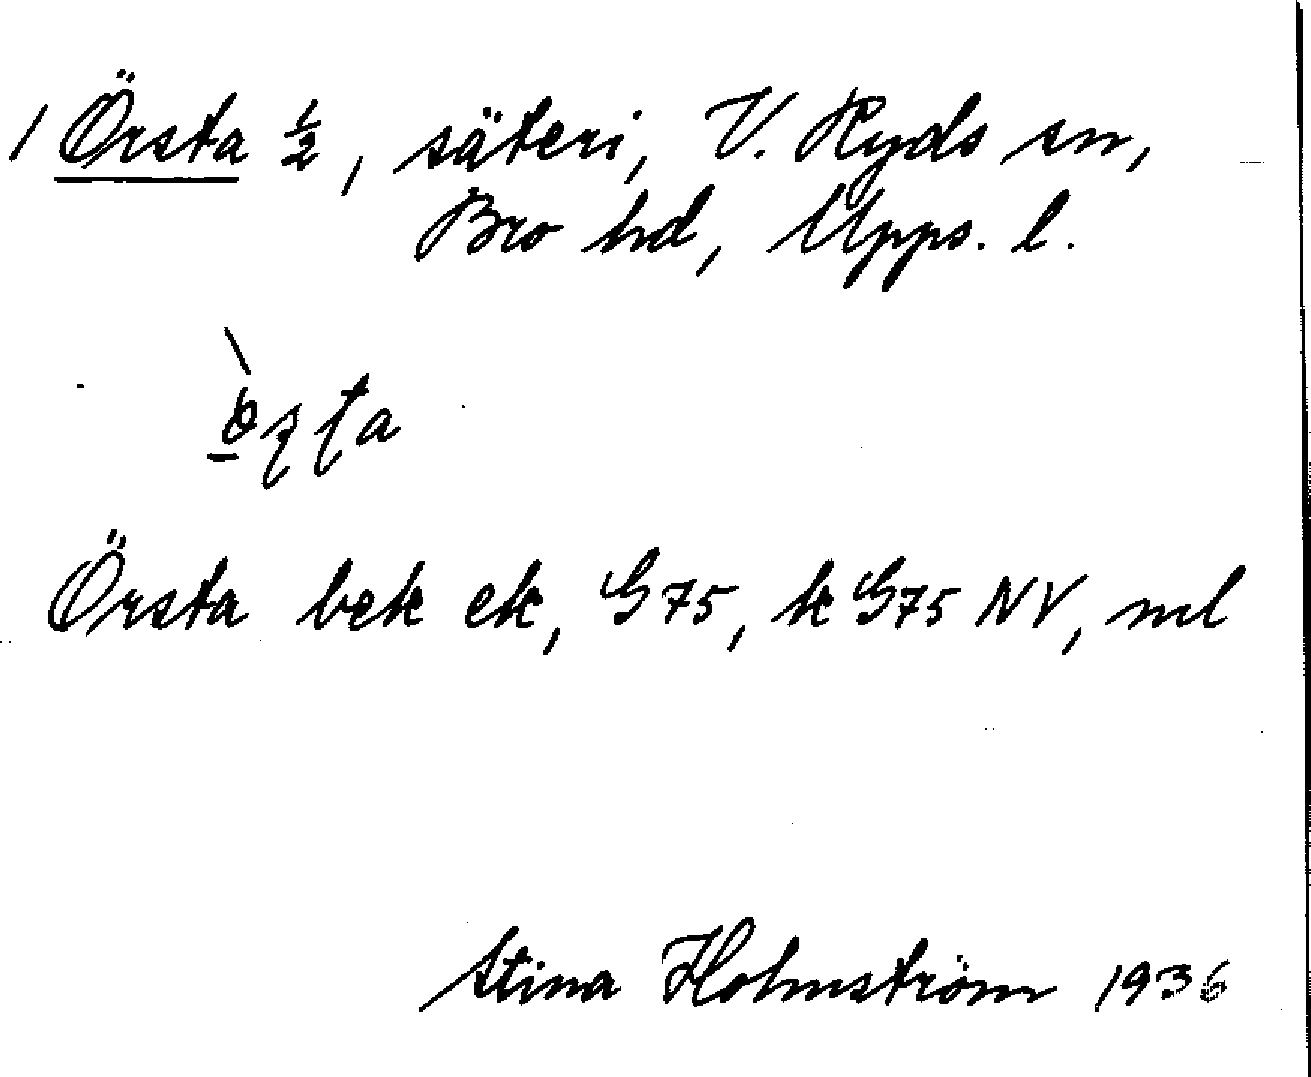 / Örsta ½, säteri, V. Ryds sn,
Bro hd, Upps. l.
Örsta bek ek, G 75, k G75 NV, ml
Stina Holmström 1936